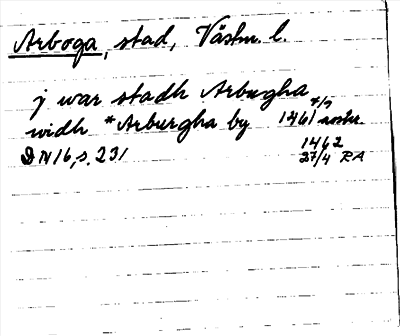 Arboga, stad, Västm. l.
j war stadh Arbugha
widh *Arburgha by 1461 4/9 avskr.
DN 16, s. 231 1462
27/4 RA